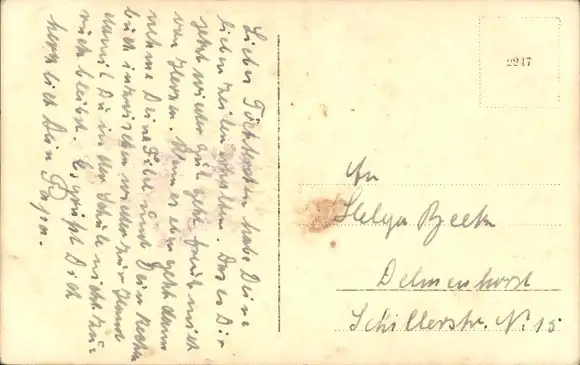 Liebes Töchterchen habe Deine
lieben Zeilen erhalten. Dass es Dir
jetzt wieder gut geht freut mich
von Herzen. Wenn es eben geht dann
nehme Deine Fibel und Dein Rechen
buch inzwischen wieder zur Hand
damit Du in der Schule nicht zu=
rück bleibst. Es grüßt Dich
herzlich Dein Papa.
2247
An
Helga Beck
Delmenhorst
Schillerstr. No 15